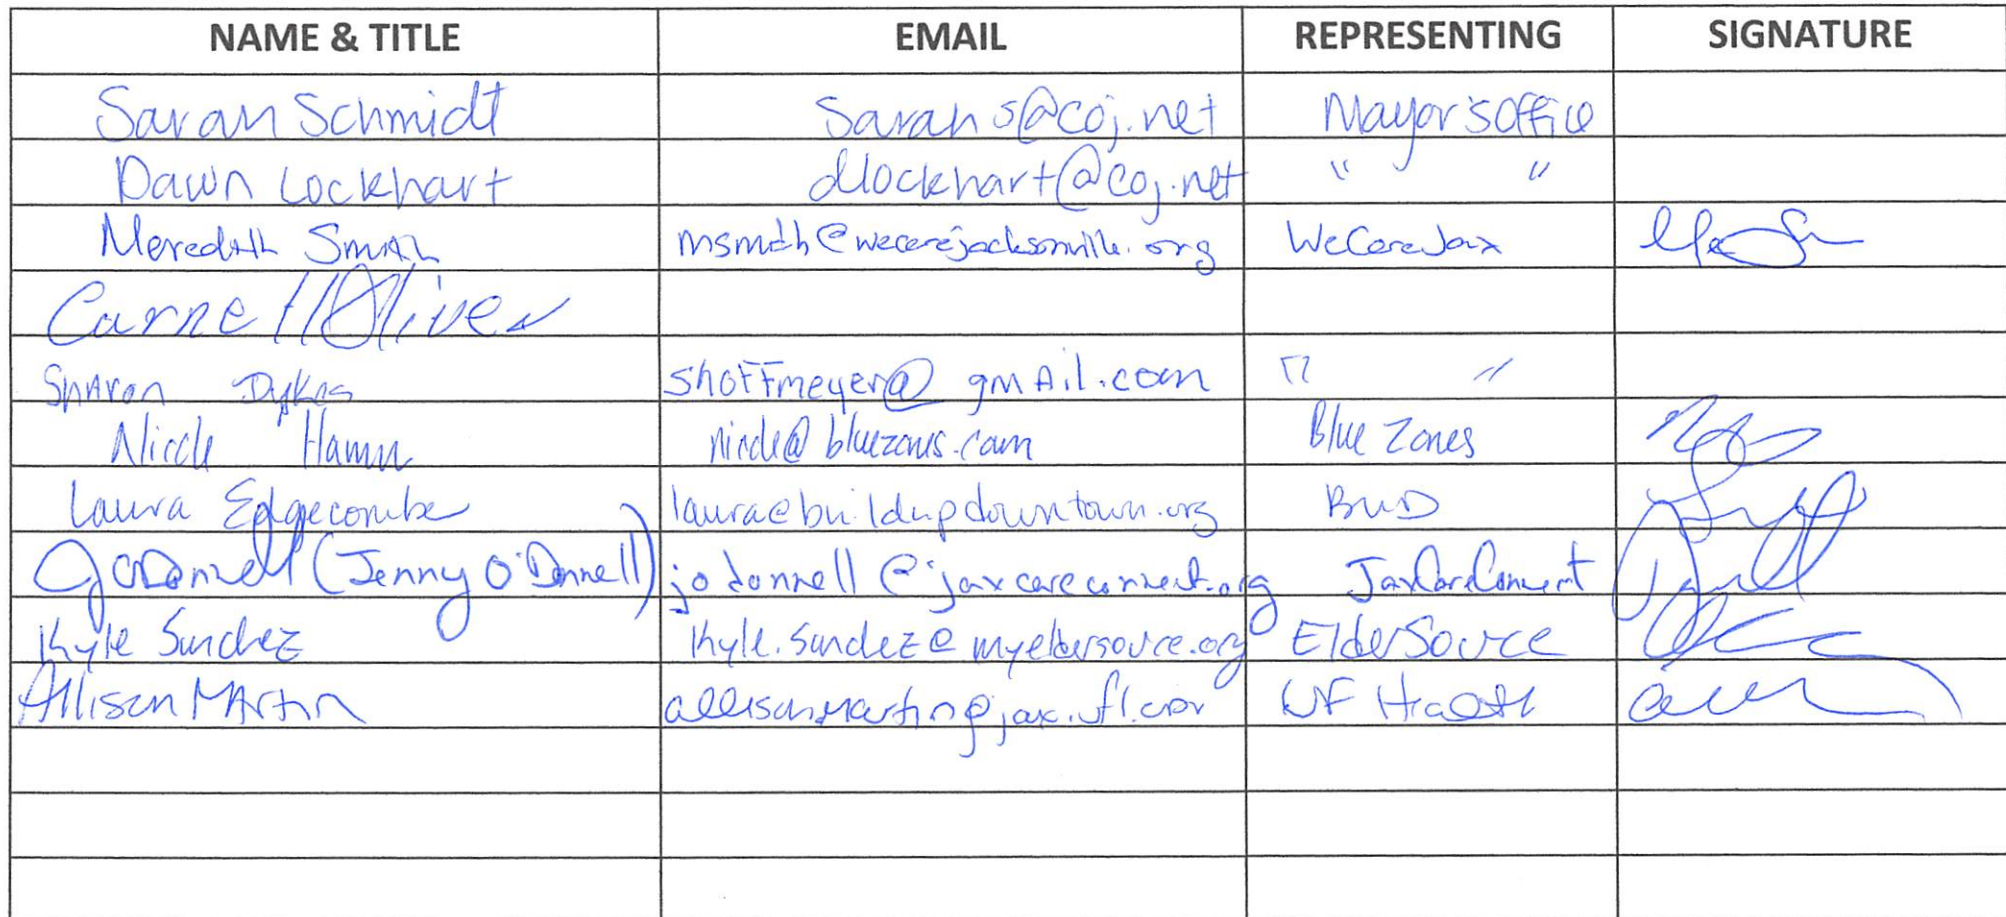 NAME & TITLE EMAIL REPRESENTING SIGNATURE
Sarah Schmidt Sarahs@coj.net Mayor's Office
Dawn Lockhart dlockhart@coj.net " "
Meredith Smith msmith@wecarejacksonville.org WeCareJax
Carnell Oliver
Sharon Dykes shoffmeyer@gmail.com " "
Nicole Hamm nicole@bluezones.com Blue Zones
Laura Edgecombe laura@buildupdowntown.org BUD
JODonnell (Jenny O'Donnell) jodonnell@jaxcareconnect.org JaxCareConnect
Kyle Sanchez Kyle.Sanchez@myeldersource.org ElderSource
Allison Martin allison.martin@jax.ufl.edu UF Health